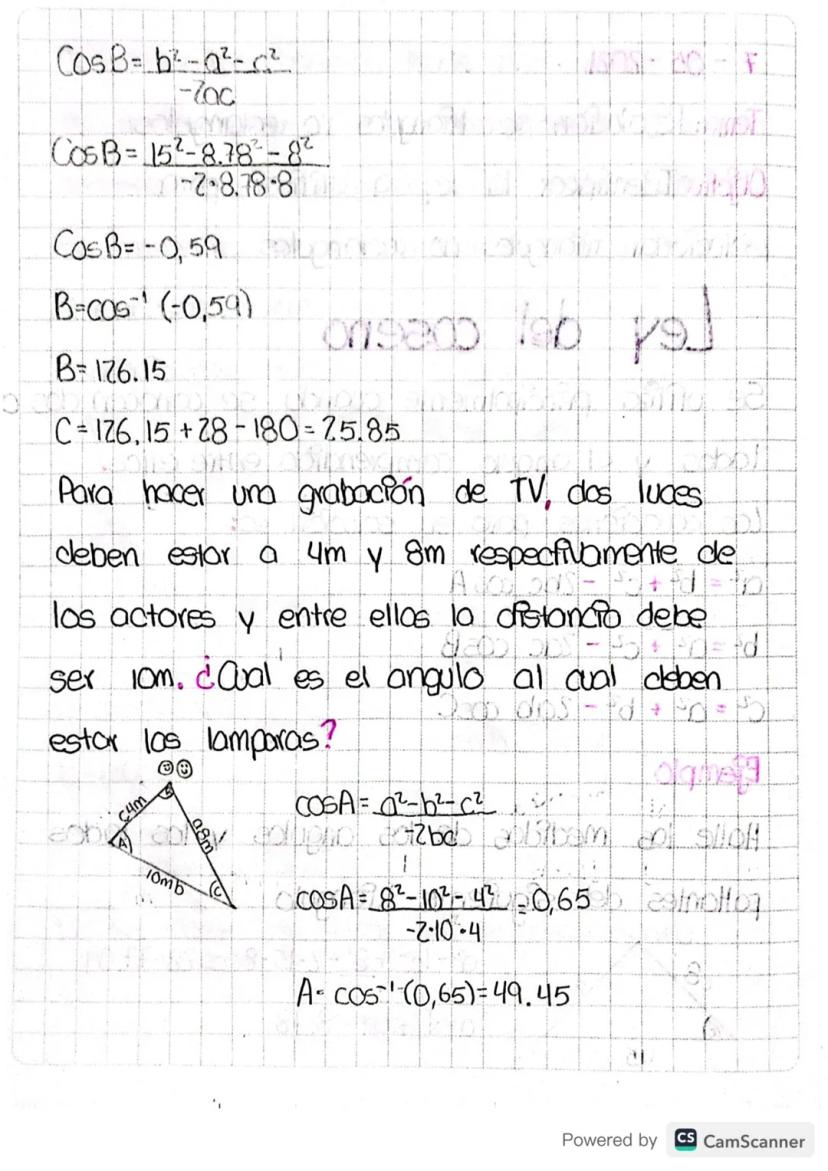 CosB = b² - a² - c²
-2ac
CosB = 15² - 8.78² - 8²
-2·8.78·8
CosB = -0,59
B = cos⁻¹ (-0,59)
B = 126.15
C = 126,15 + 28 - 180 = 25.85
Para hacer una grabación de TV, dos luces
deben estar a 4m y 8m respectivamente de
los actores y entre ellos la distancia debe
ser 10m. ¿Cual es el angulo al cual deben
estar las lamparas?
c4m
a8m
10mb
A
B
C
cosA = a² - b² - c²
-2bc
cosA = 8² - 10² - 4² = 0,65
-2·10·4
A = cos⁻¹ (0,65) = 49.45
Powered by CS CamScanner